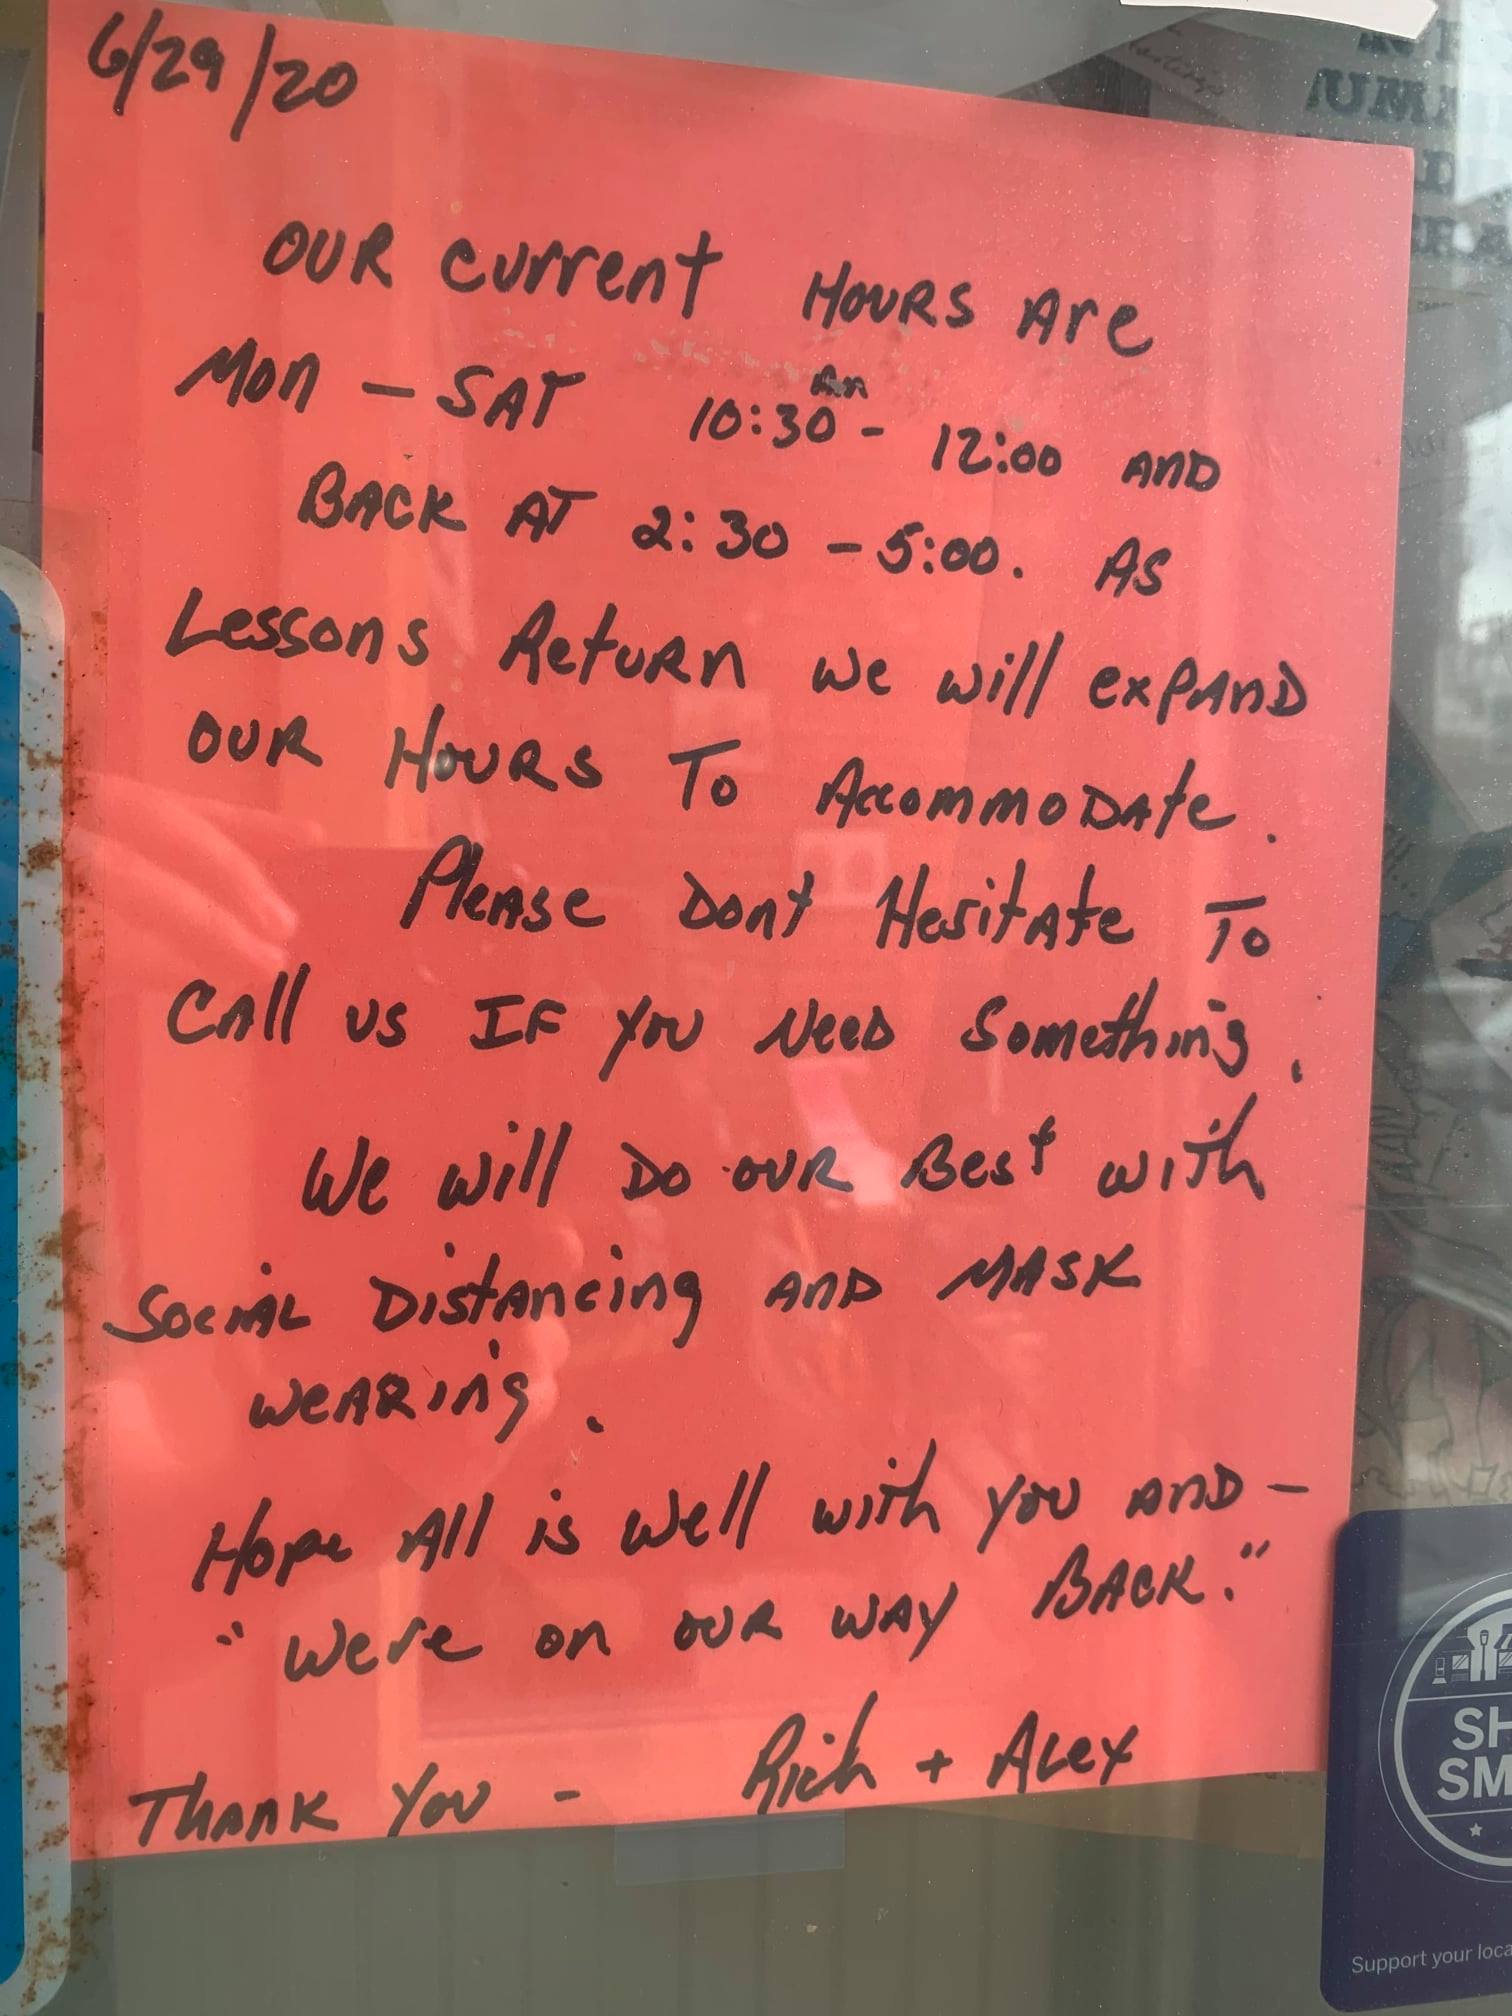 6/29/20
OUR Current HOURS Are
MON - SAT 10:30 AM - 12:00 AND
BACK AT 2:30 - 5:00. AS
Lessons Return we will expAND
OUR HOURS TO AccommoDAte.
PleAse Dont HesitAte To
CAll us IF you NeeD Something.
We will Do OUR Best with
SociAL DistAncing AND MASK
weARing.
Hope All is well with you AND -
"We're on OUR WAY BACK."
THANK YOU - Rich + ALex
SH
SM
Support your loca